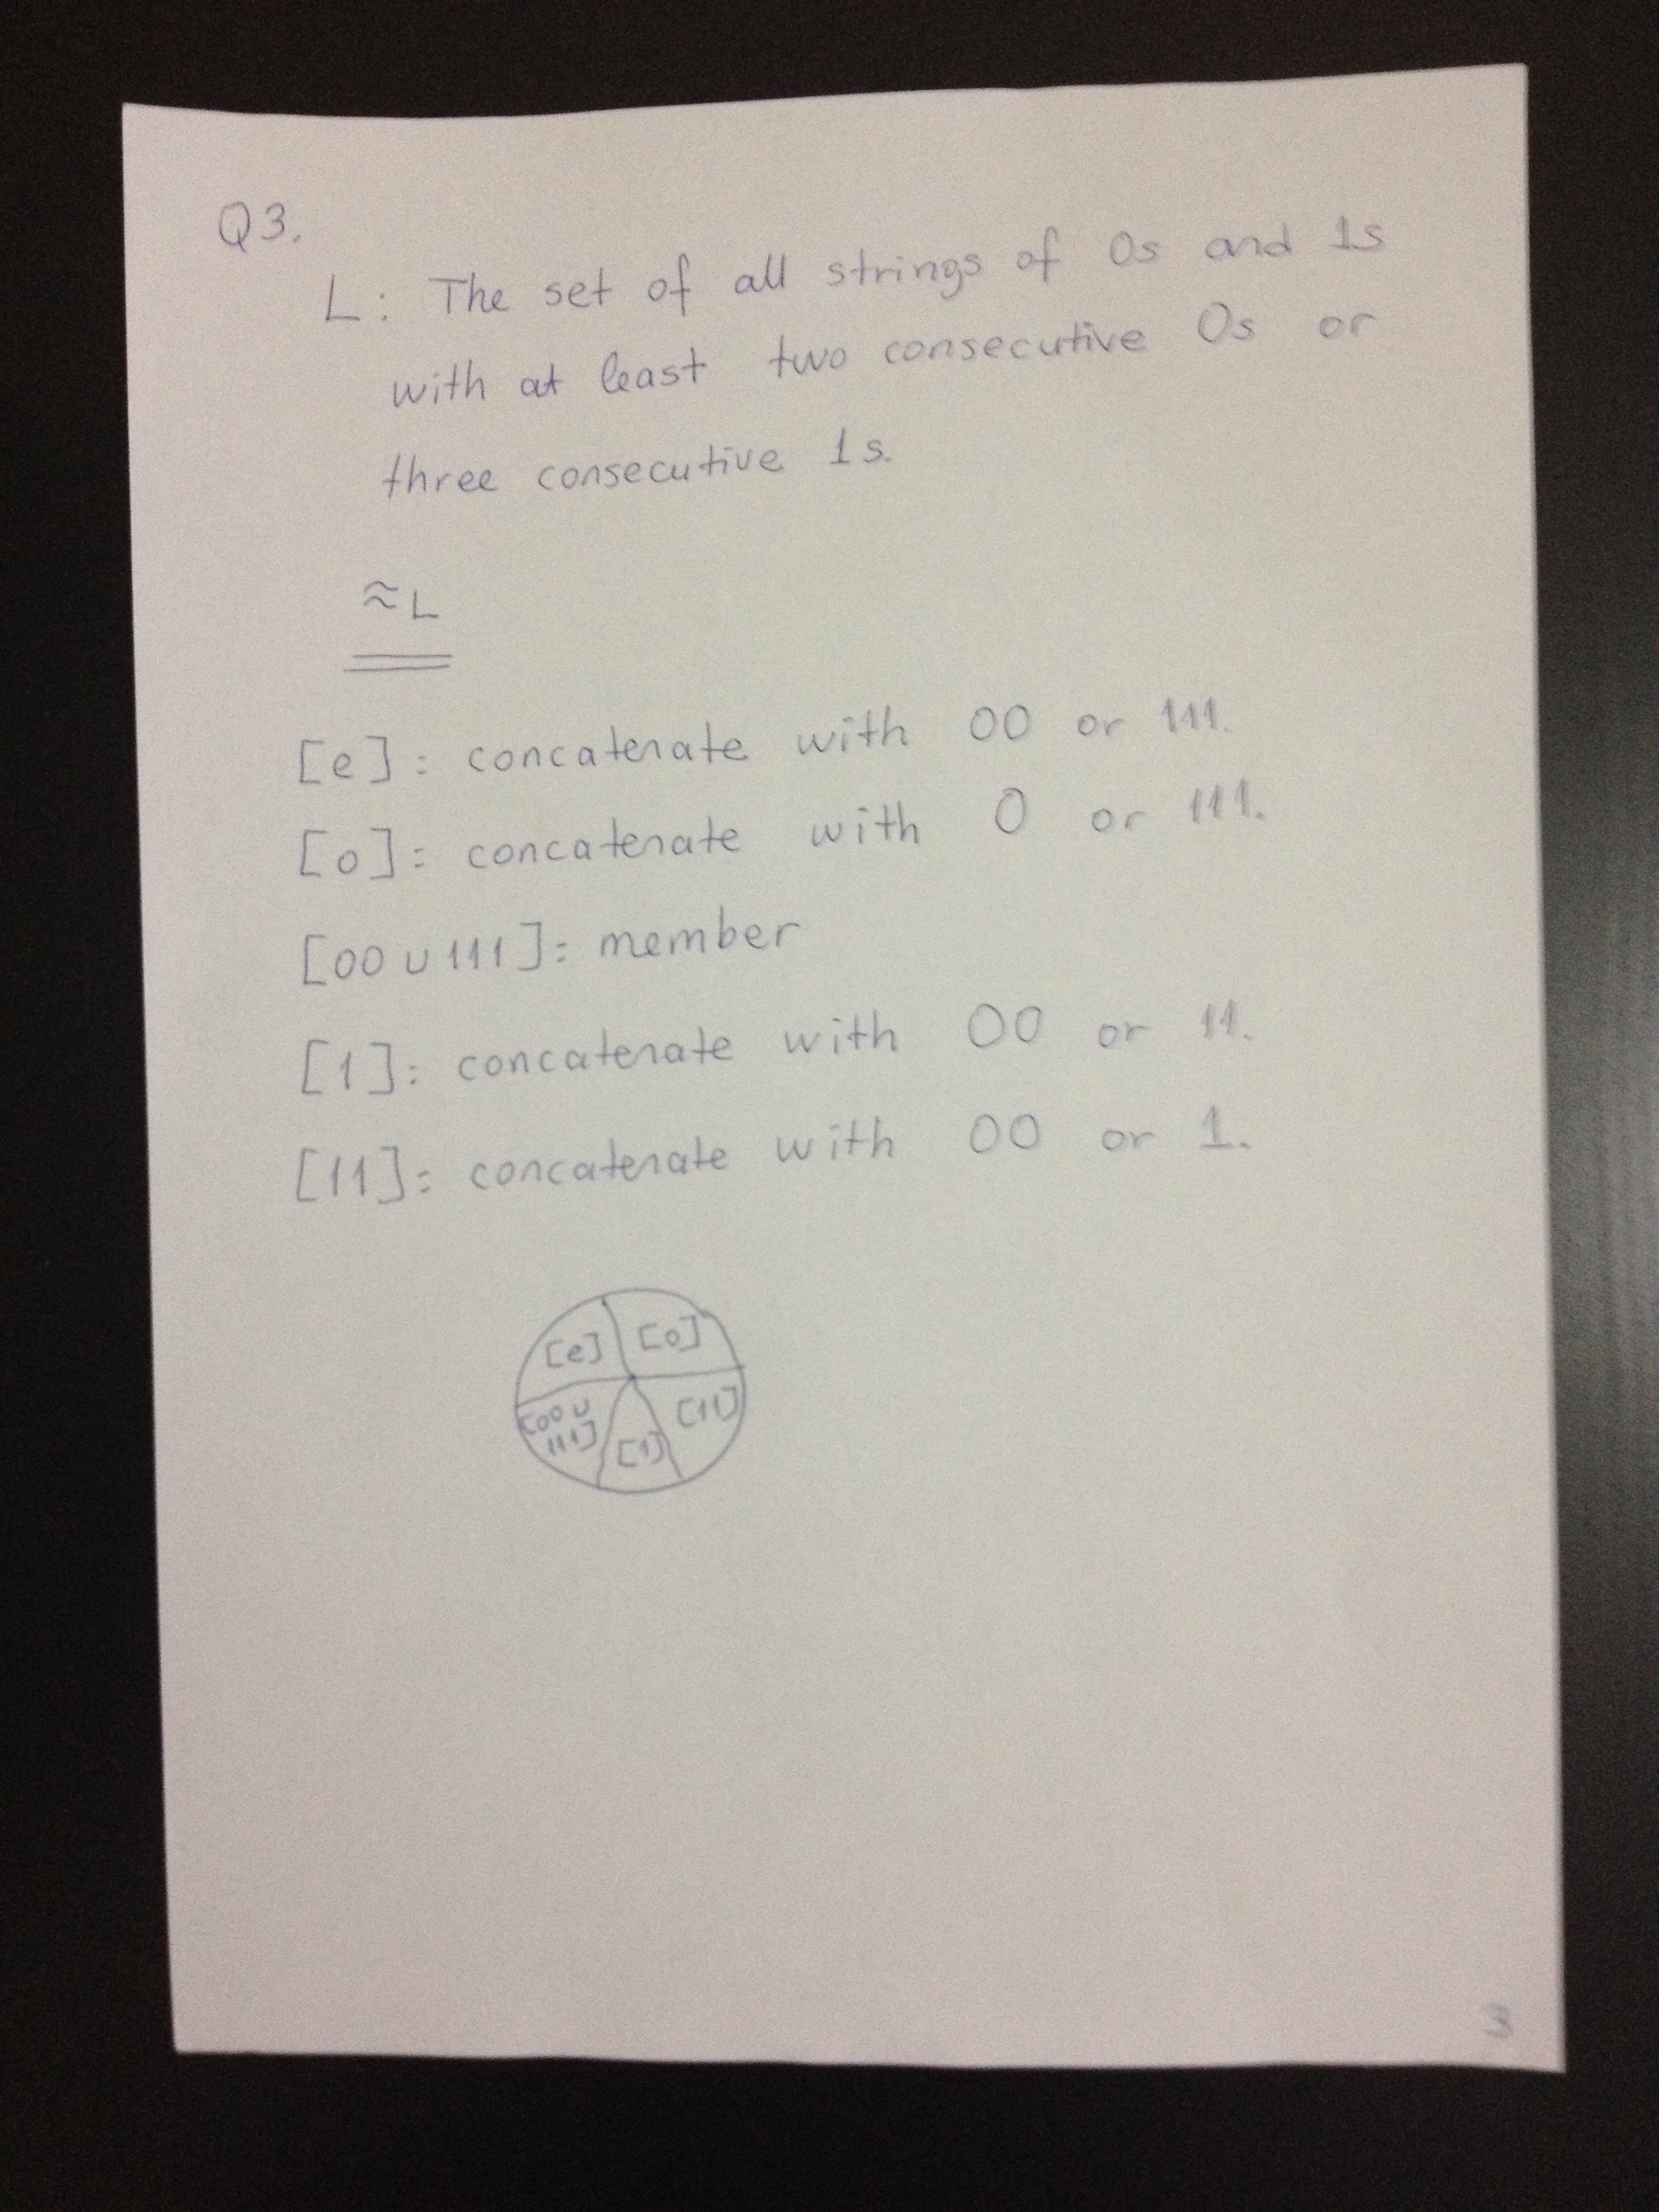 Q3.
L: The set of all strings of 0s and 1s
with at least two consecutive 0s or
three consecutive 1s.
≈L
[e]: concatenate with 00 or 111.
[0]: concatenate with 0 or 111.
[00 ∪ 111]: member
[1]: concatenate with 00 or 11.
[11]: concatenate with 00 or 1.
[e] [0]
[00 ∪
111] [1] [11]
3